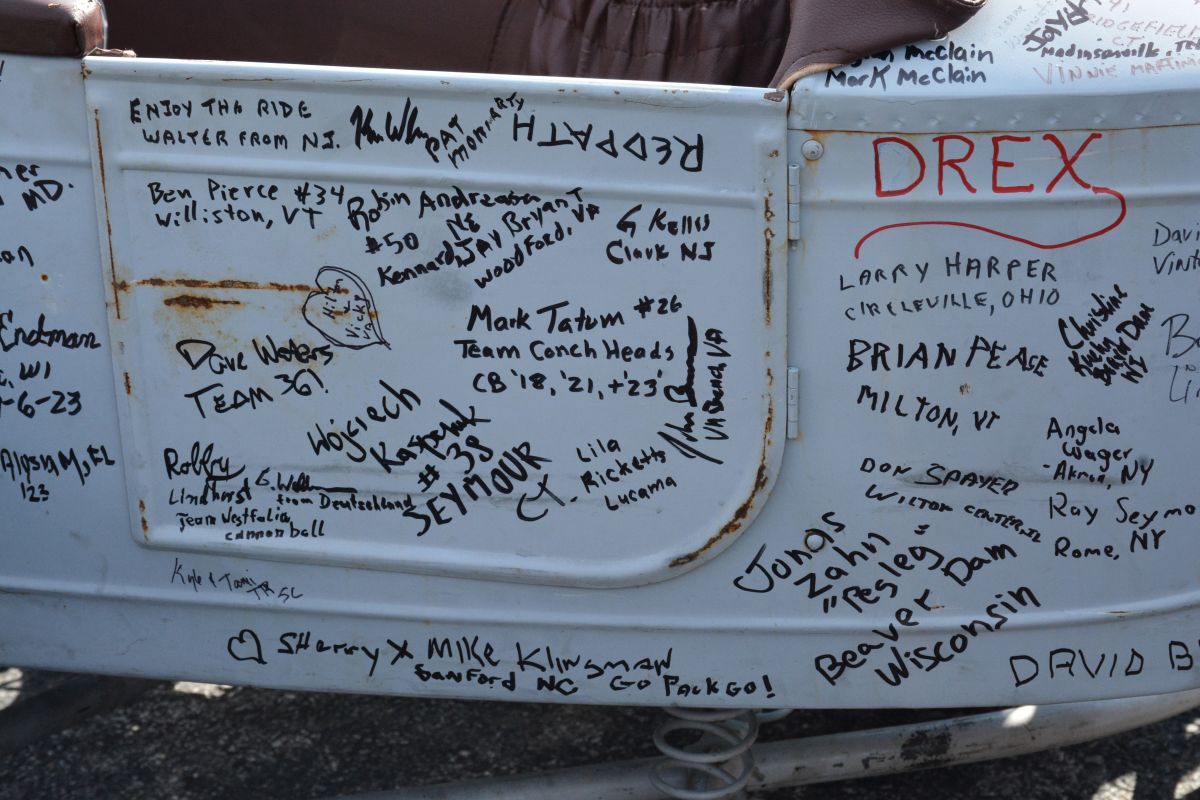 Mark McClain
VINNIE
ENJOY THA RIDE
WALTER FROM NJ.
PAT
MORIARTY
REDPATH
DREX
Ben Pierce #34
Williston, VT
Robin Andreasen
#50 NE
Kennard
JAY BryanT
WOODFORD, VA
G Kellis
Clark NJ
LARRY HARPER
CIRCLEVILLE, OHIO
Davi
Vint
MD.
Endman
WI
-6-23
FL
123
Vicky
Mark Tatum #26
Team Conch Heads
CB '18, '21, +'23'
VA
Dave Waters
TEAM 36!
BRIAN PEASE
MILTON, VT
Christine
Kuehn
Beaver Dam
WI
Wojciech
Kasprzak
#38
SEYMOUR
CT.
Lila
Ricketts
Lucama
Robby
Lindhorst
from Deutschland
Team Westfalia
cannonball
DON SPAYER
WILTON CENTER, IL
Angela
Wager
Akron, NY
Ray Seymo
Rome, NY
Jonas
Zahn
"Pesleg"
Beaver Dam
Wisconsin
Kyle & Tami
Sherry X MIKE Klingman
Sanford NC Go Pack GO!
DAVID B